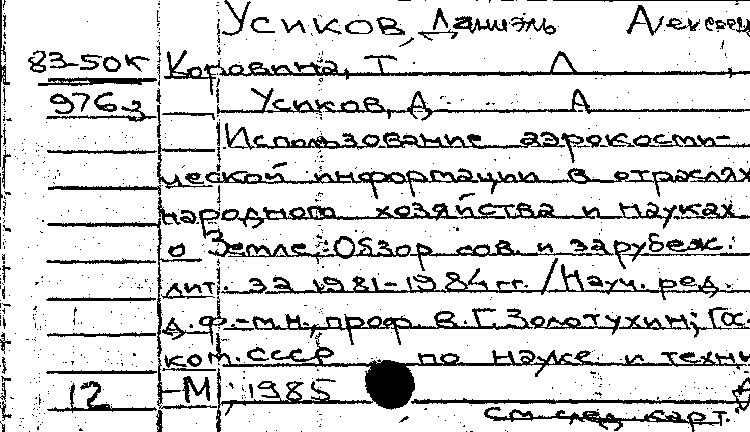 Усиков, Даниэль Алексеев
83-50К Коровина, Т Л
976з Усиков, Д А
Использование аэрокосми-
ческой информации в отраслях
народного хозяйства и науках
о Земле: Обзор сов. и зарубеж.
лит. за 1981-1984 гг. / Науч. ред.
д.ф.-м.н., проф. В.Г. Золотухин; Гос.
ком. СССР по науке и техни
12 -М, 1985
см след карт.